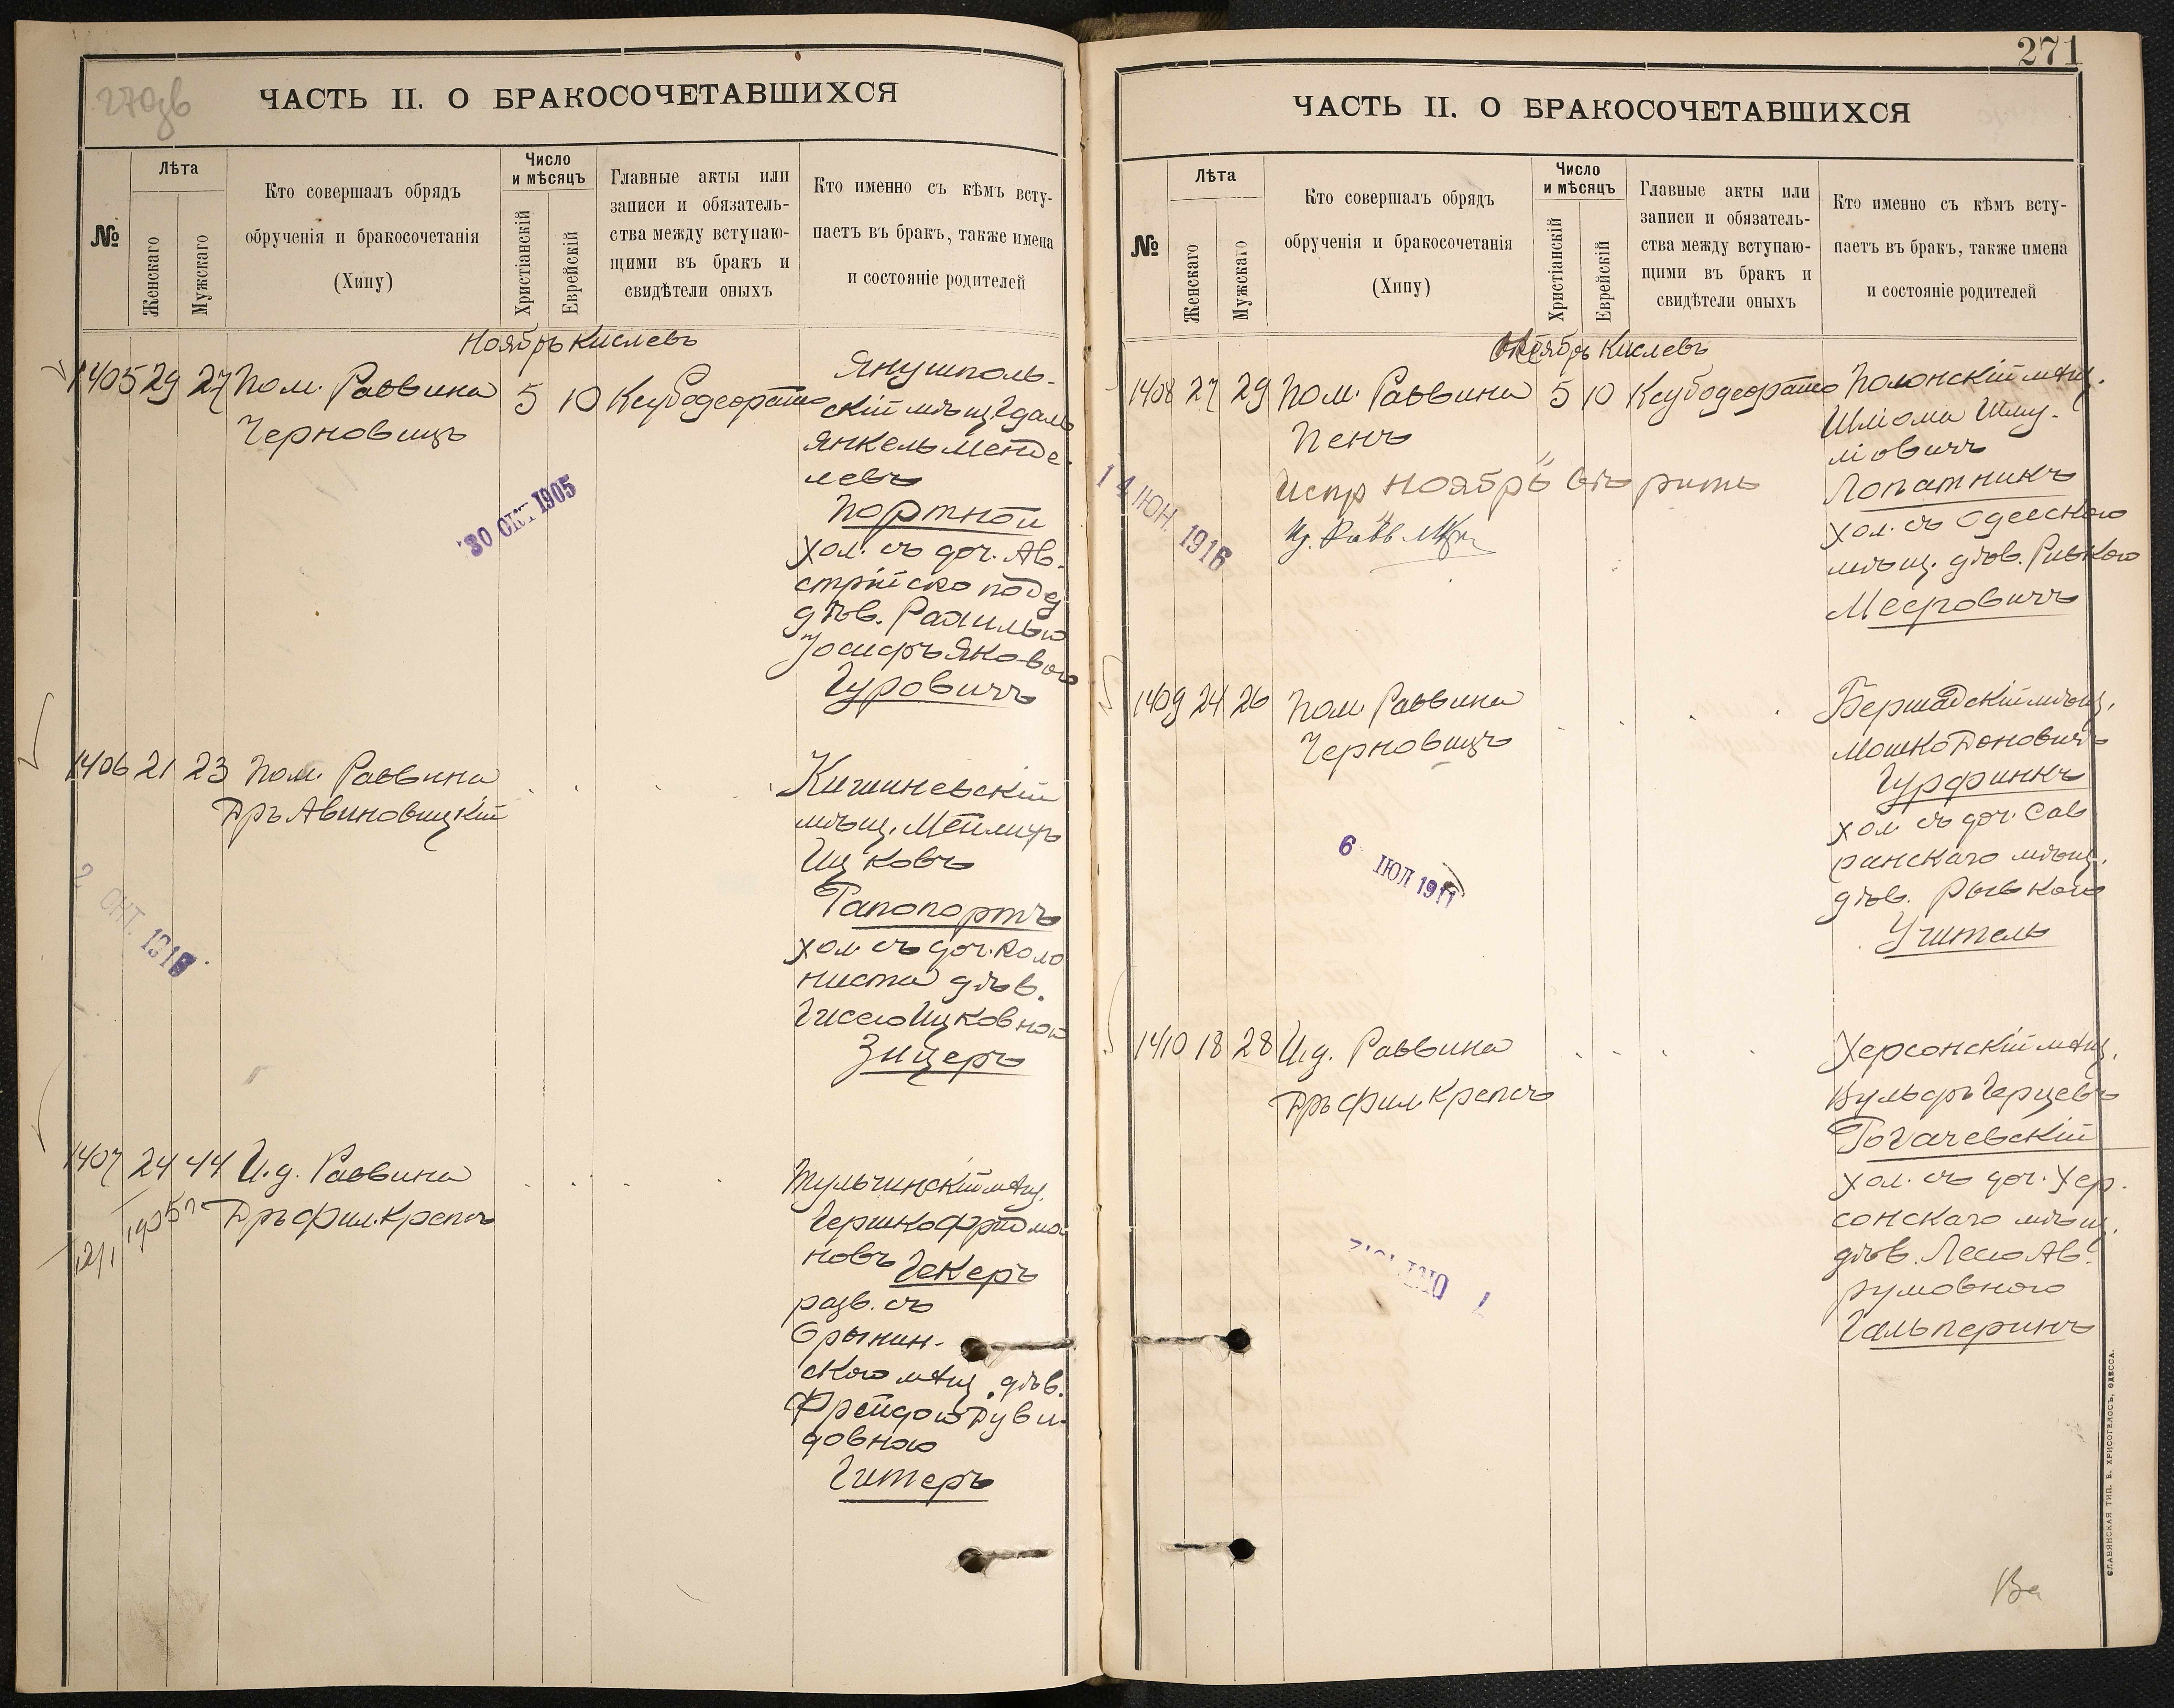 ЧАСТЬ II. О БРАКОСОЧЕТАВШИХСЯ
№
Лѣта
Женскаго
Мужскаго
Кто совершалъ обрядъ
обрученія и бракосочетанія
(Хипу)
Число
и мѣсяцъ
Христіанскій
Еврейскій
Главные акты или
записи и обязатель-
ства между вступаю-
щими въ бракъ и
свидѣтели оныхъ
Кто именно съ кѣмъ всту-
паетъ въ бракъ, также имена
и состояніе родителей
Ноябрь Кислевъ
1405 29 27 Пом. Раввина 5 10 Ксубодеорашо
Черновицъ
Янушполь-
скій мѣщ. Гдаль
Янкель Менде-
левъ
Портной
хол. съ доч. Ав-
стрійско подд
дѣв. Рахилью
Іосифъ Яковою
Гуровичъ
30 ОКТ 1905
1406 21 23 Пом. Раввина
Дръ Авиновицкій
Кишиневскій
мѣщ. Мейлихъ
Ицковъ
Рапопортъ
хол. съ доч. коло
ниста дѣв.
Гисею Ицковною
Зицеръ
2 ОКТ. 1916
1407 24 44 И.д. Раввина
Дръ Фил. Крепсъ
Тульчинскій мѣщ.
Гершко Фридма
новъ Гекеръ
разв. съ
Орынин-
скою мѣщ. дѣв.
Фрейдою Дуви-
довною
Гитеръ
271
ЧАСТЬ II. О БРАКОСОЧЕТАВШИХСЯ
№
Лѣта
Женскаго
Мужскаго
Кто совершалъ обрядъ
обрученія и бракосочетанія
(Хипу)
Число
и мѣсяцъ
Христіанскій
Еврейскій
Главные акты или
записи и обязатель-
ства между вступаю-
щими въ бракъ и
свидѣтели оныхъ
Кто именно съ кѣмъ всту-
паетъ въ бракъ, также имена
и состояніе родителей
Октябрь Кислевъ
1408 27 29 Пом. Раввина 5 10 Ксубодеорашо
Пенъ
Испр "Ноябрь" вѣрить
И.д. Равв.
Полонскій мѣщ.
Шлома Шму-
ліовичъ
Лопатникъ
хол. съ Одесскою
мѣщ. дѣв. Ривкою
Мееровичъ
14 ІЮН. 1916
1409 24 26 Пом. Раввина
Черновицъ
Бершадскій мѣщ.
Мошко Доновичъ
Гурфинкъ
хол. съ доч. Сав
ранскаго мѣщ.
дѣв. Рывкою
Учитель
6 ІЮЛ 1911
1410 18 28 И.д. Раввина
Дръ Фил. Крепсъ
Херсонскій мѣщ.
Вульфъ Герцевъ
Рогачевскій
хол. съ доч. Хер-
сонскаго мѣщ.
дѣв. Лесю Ав-
румовною
Гальперинъ
СЛАВЯНСКАЯ ТИП. Е. ХРИСОГЕЛОСЪ, ОДЕССА.